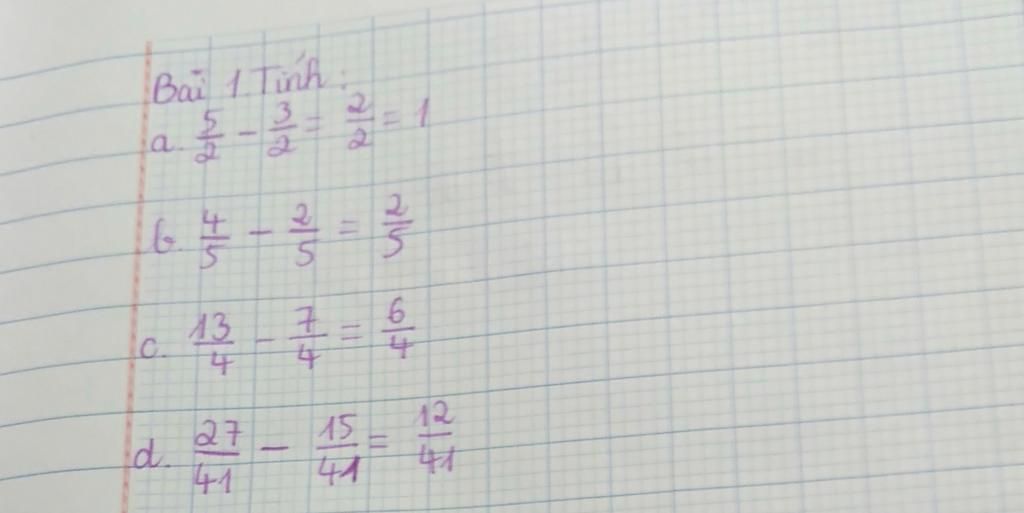 Bài 1. Tính:
a. 5/2 - 3/2 = 2/2 = 1
b. 4/5 - 2/5 = 2/5
c. 13/4 - 7/4 = 6/4
d. 27/41 - 15/41 = 12/41